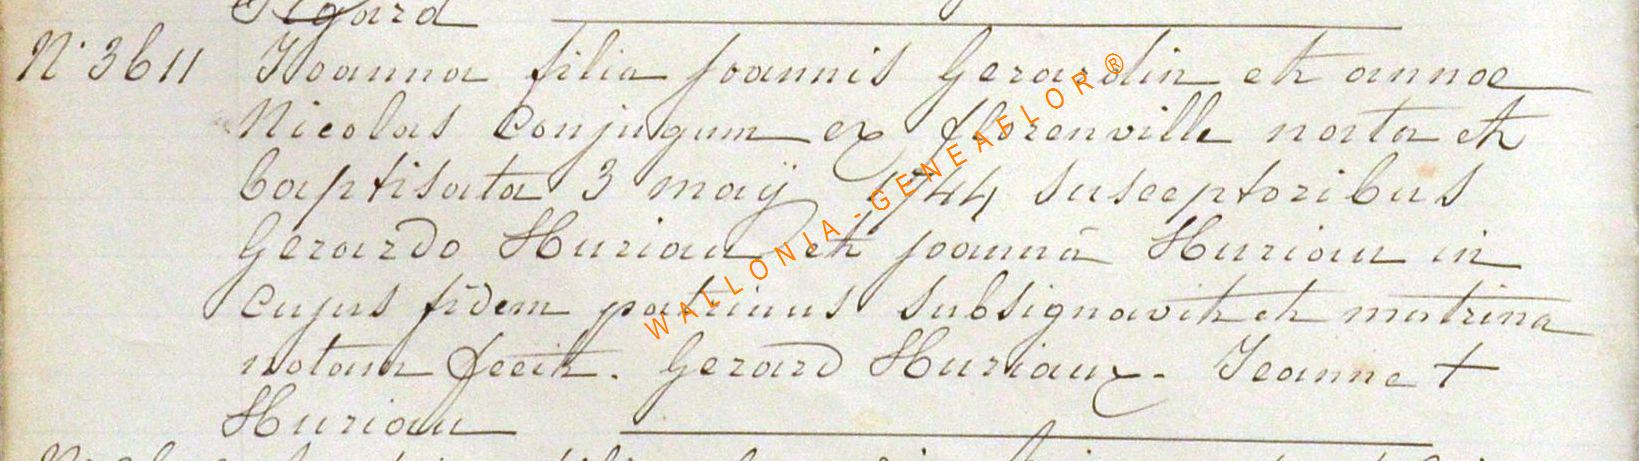 Sigard
N° 3611 Joanna filia Joannis Gerardin et annae
Nicolas Conjugum ex florenville nata et
baptisata 3 maÿ 1744 susceptoribus
Gerardo Huriau et joannâ Huriau in
cujus fidem patrinus subsignavit et matrina
notam fecit. Gerard Huriaux. Jeanne +
Huriau
WALLONIA-GENEAFLOR®